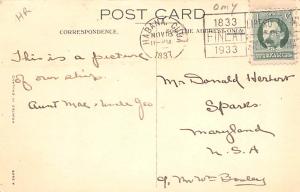 HR
OMY
POST CARD
CORRESPONDENCE.
HABANA, CUBA
NOV 18
1833
FINLAY
1933
This is a picture
of our ship.
Aunt Mae - Uncle Geo
Mr Donald Herbert
Sparks
Maryland
U.S.A